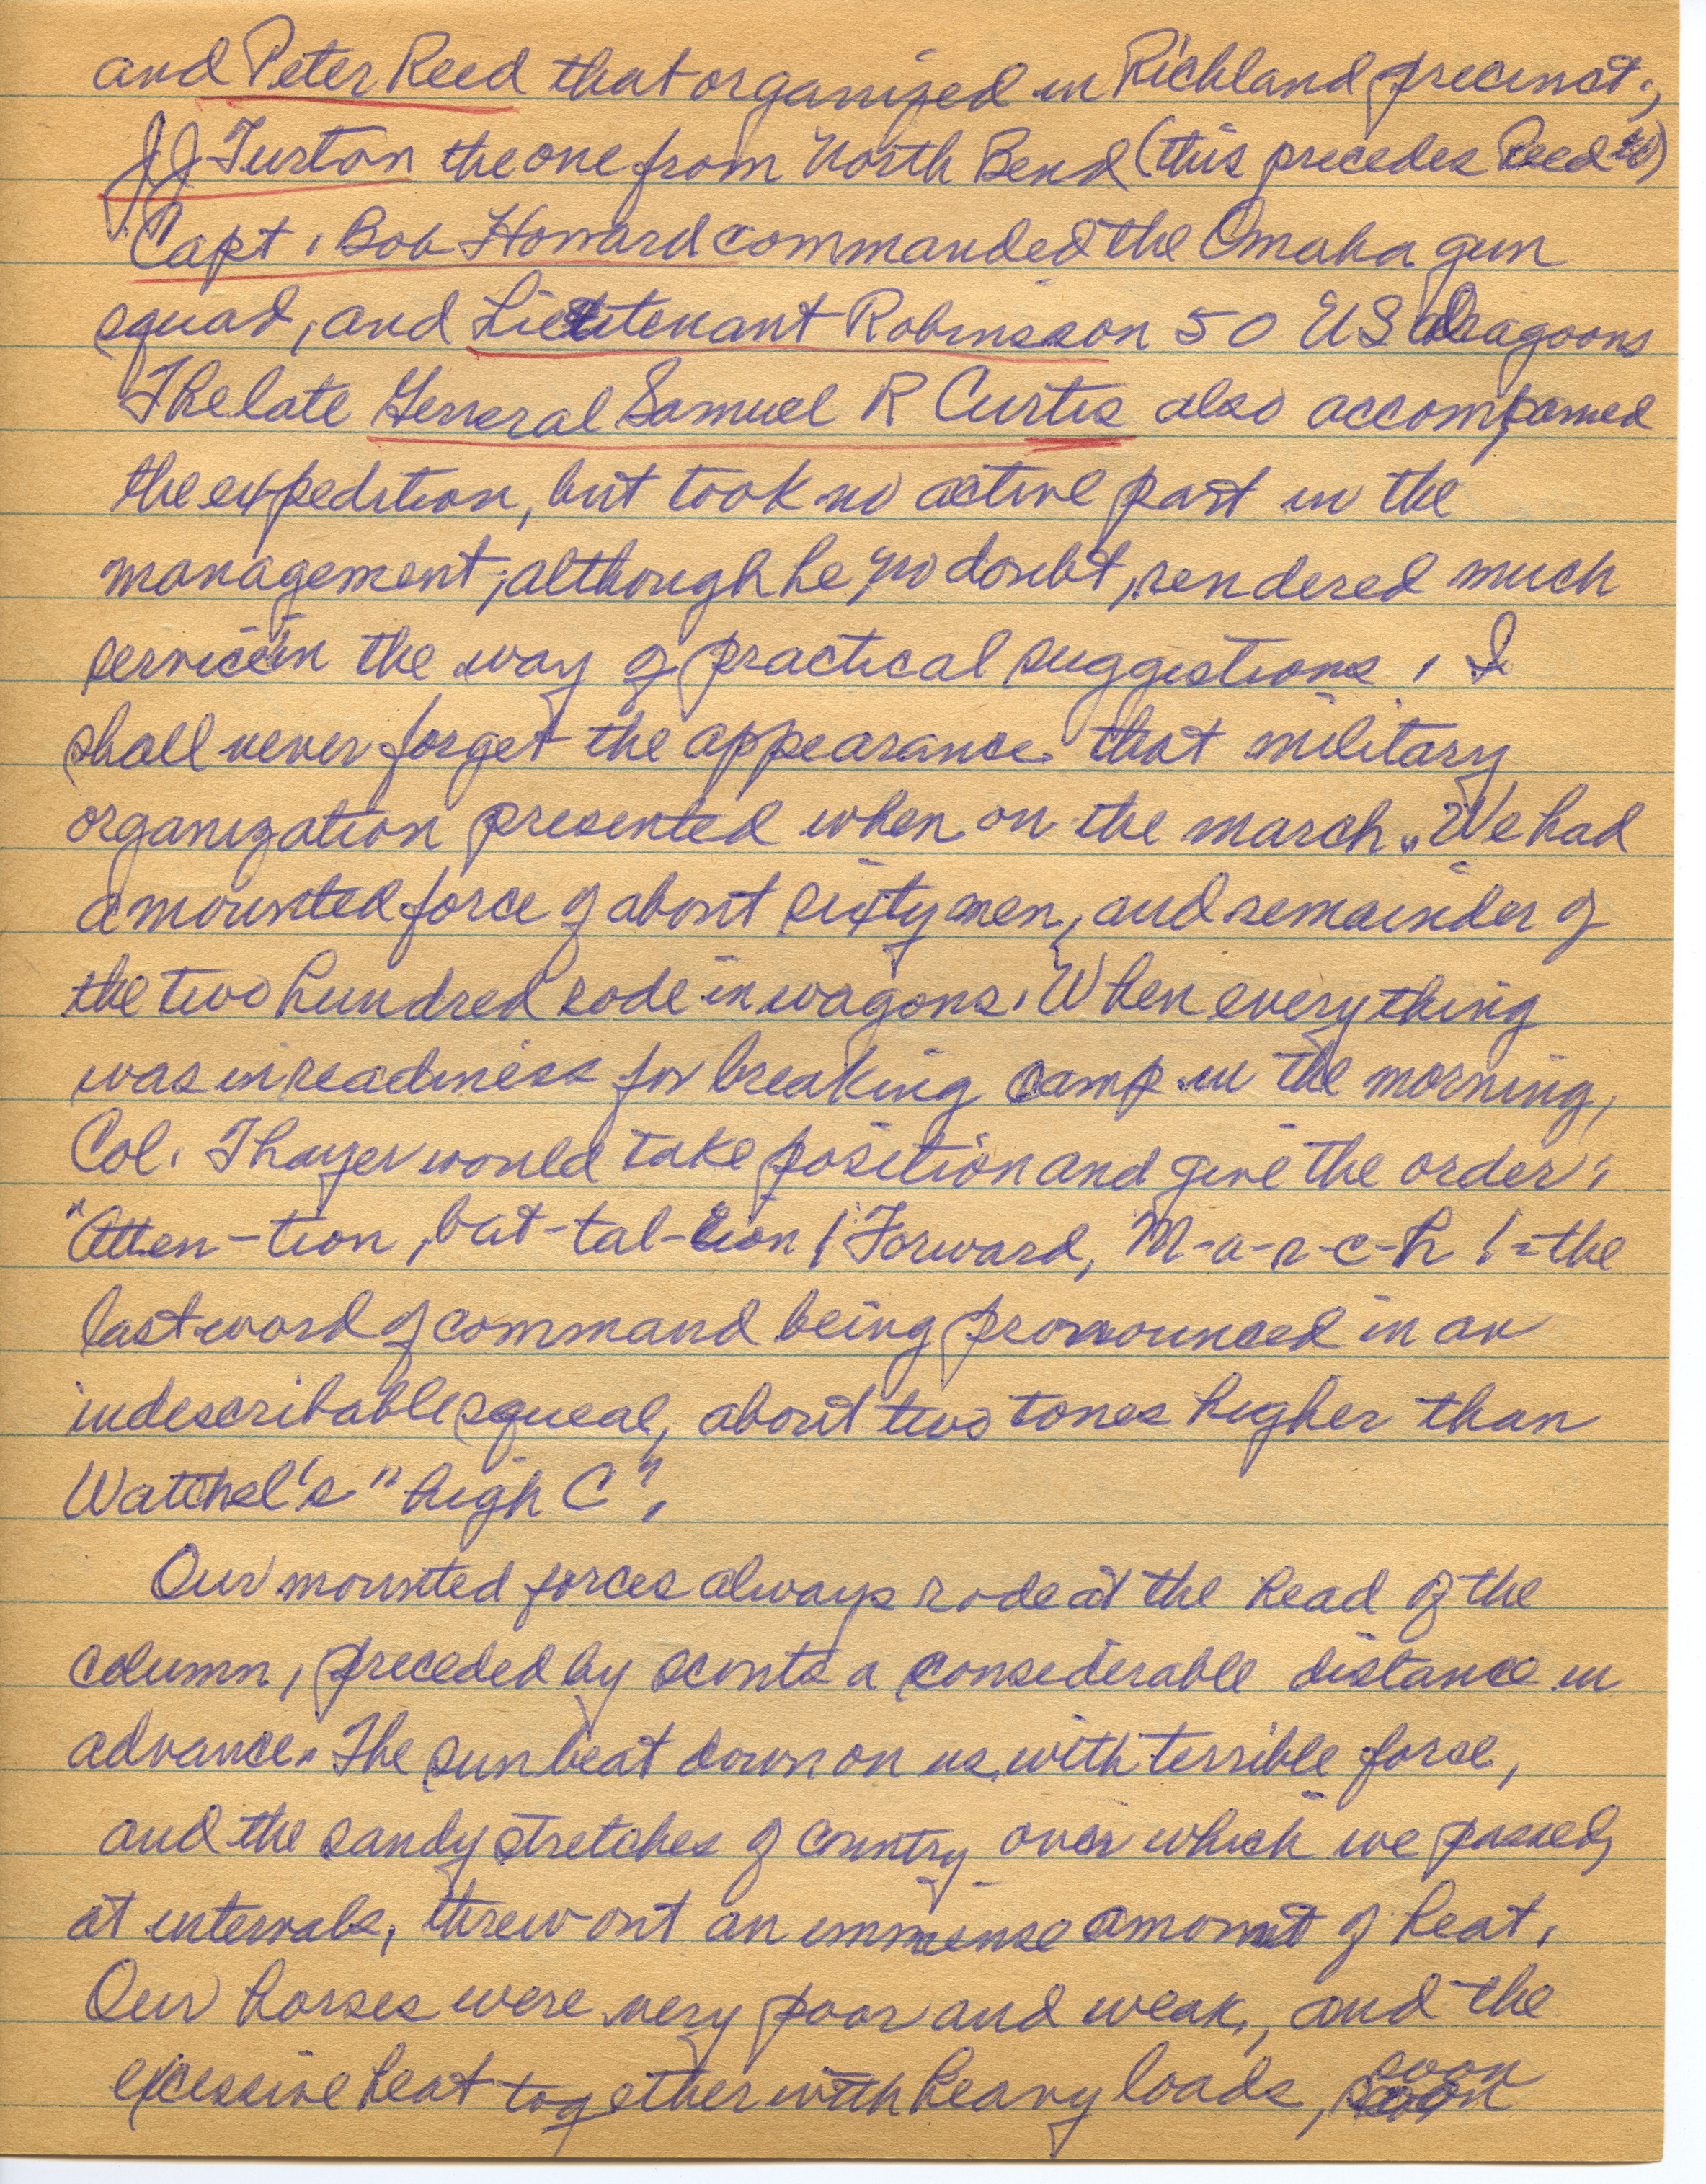 and Peter Reed that organized in Richland precinct.,
JJ Turton the one from North Bend (this precedes Reed)
Capt. Bob Howard commanded the Omaha gun
squad, and Lieutenant Robinson 50 US Dragoons
The late General Samuel R Curtis also accompanied
the expedition, but took no active part in the
management, although he, no doubt, rendered much
service in the way of practical suggestions. I
shall never forget the appearance that military
organization presented when on the march. We had
a mounted force of about sixty men, and remainder of
the two hundred rode in wagons. When everything
was in readiness for breaking camp in the morning,
Col. Thayer would take position and give the order:
"Atten-tion, bat-tal-lion! Forward, M-a-r-c-h!-the
last word of command being pronounced in an
indescribable squeal, about two tones higher than
Watchel's "high C",
Our mounted forces always rode at the head of the
column, preceded by scouts a considerable distance in
advance. The sun beat down on us with terrible force,
and the sandy stretches of country over which we passed,
at intervals, threw out an immense amount of heat.
Our horses were very poor and weak, and the
excessive heat together with heavy loads, soon